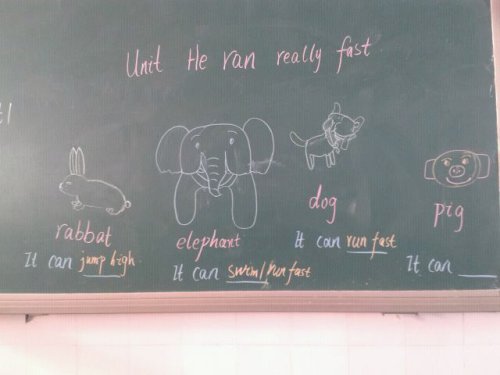 Unit He ran really fast.
rabbat
It can jump high
elephant
It can swim/run fast
dog
It can run fast
pig
It can ___